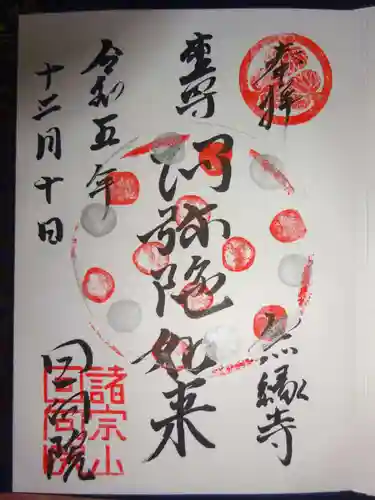 奉拝
無縁寺
本尊
阿弥陀如来
令和五年
十二月十日
回向院
諸宗山
回向院